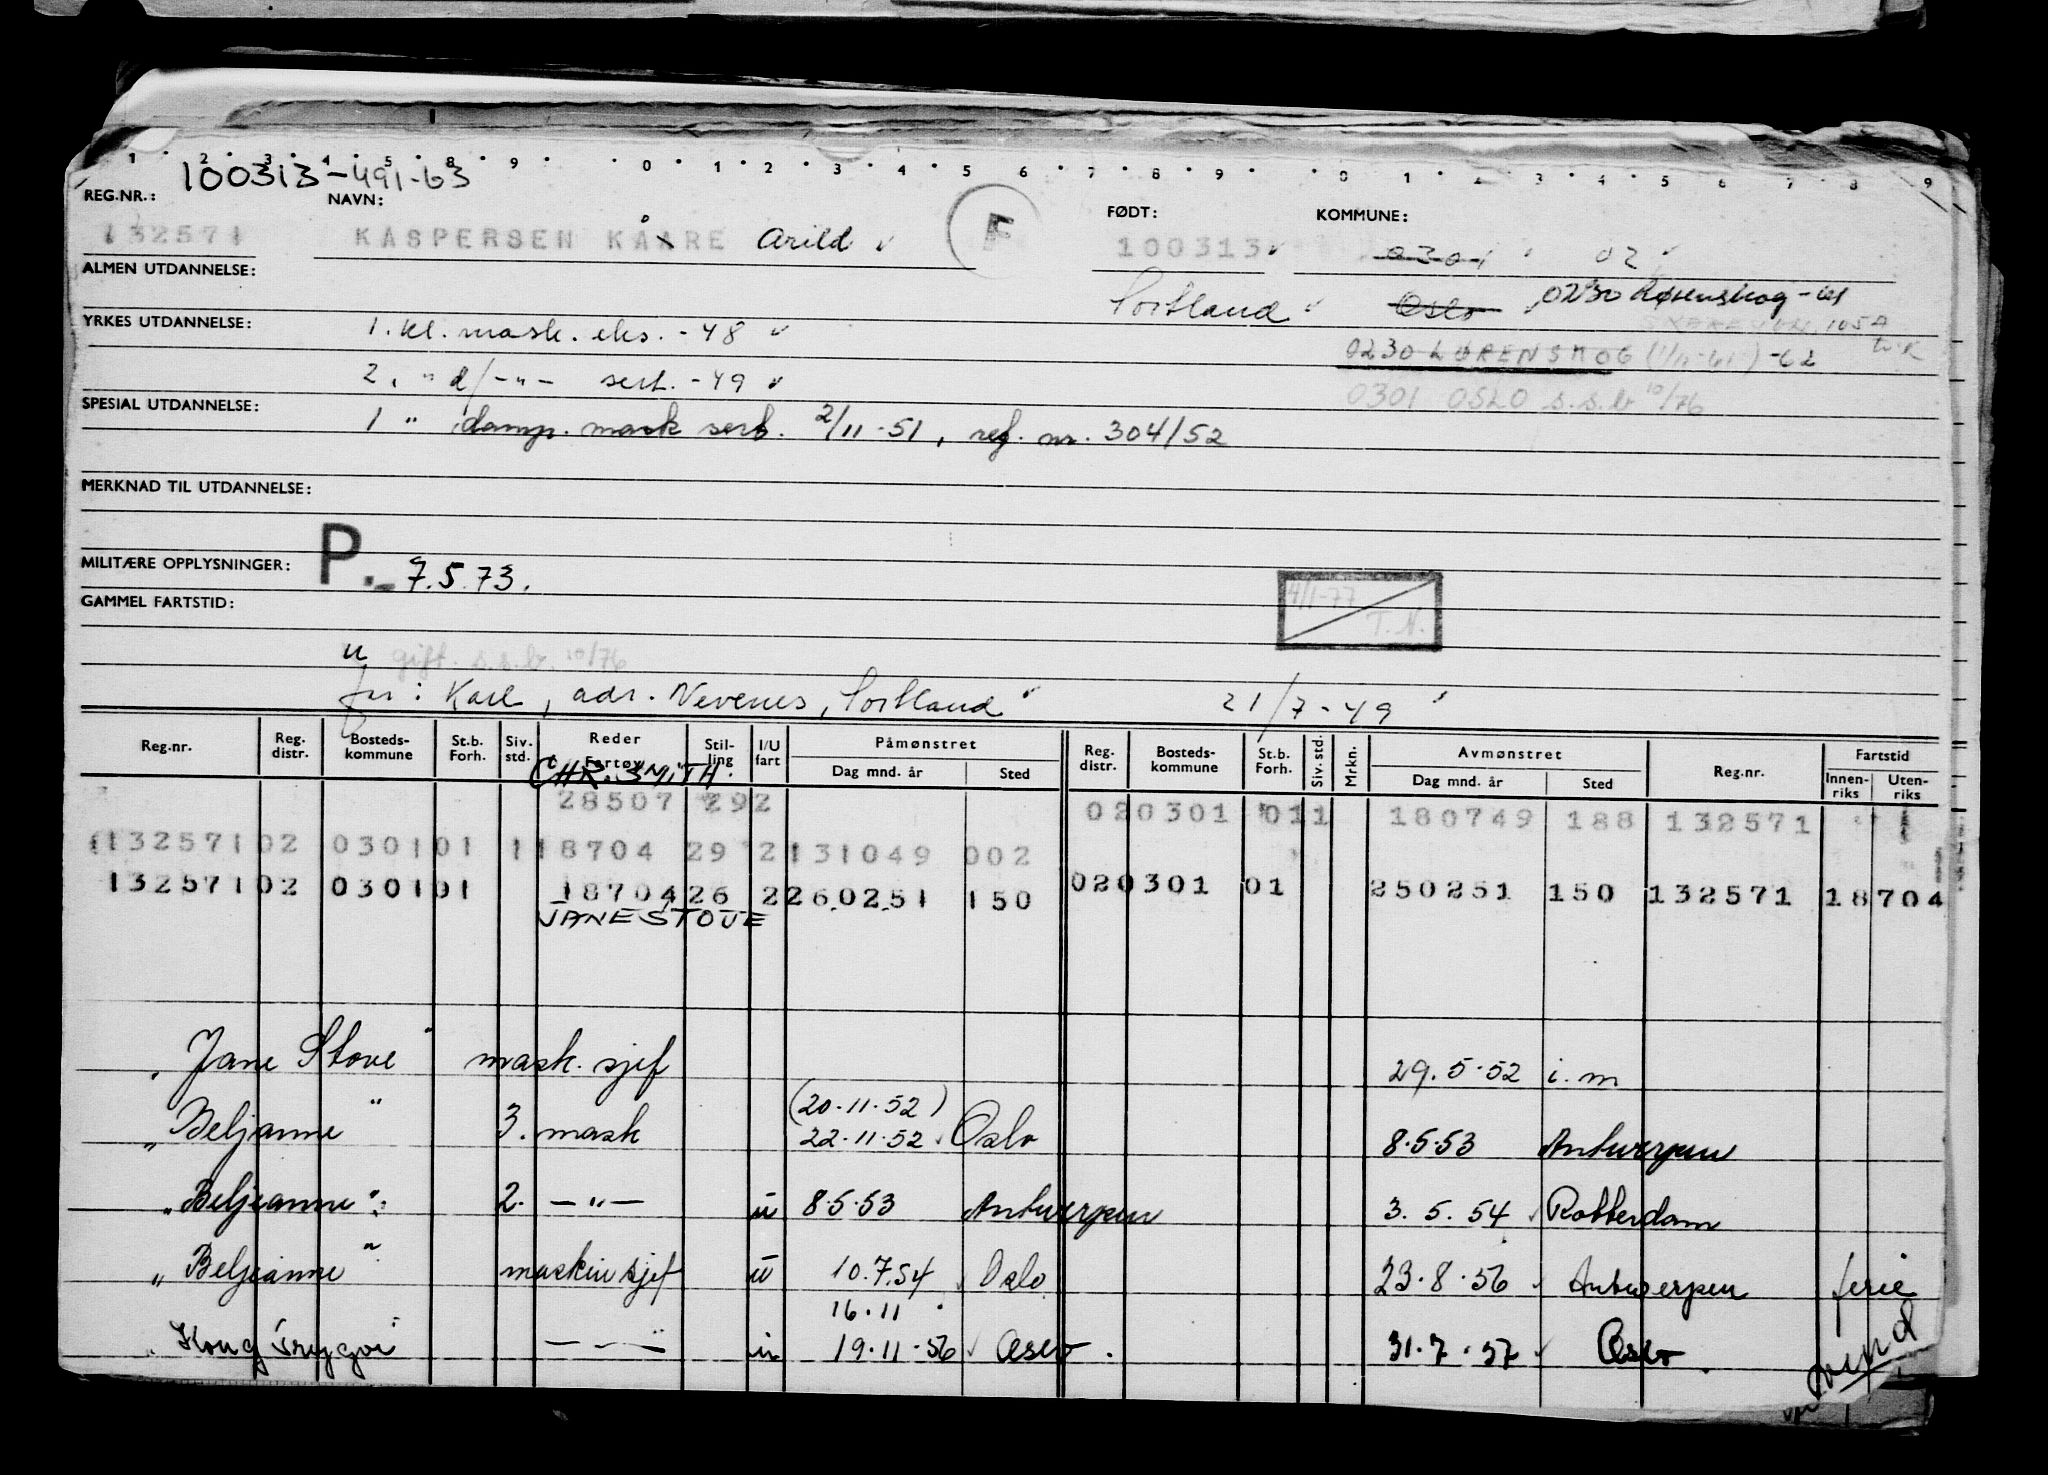 1 2 3 4 5 8 9 0 1 2 3 4 5 6 7 8 9 0 1 2 3 4 5 6 7 8 9
REG.NR.: 100313-491-63 NAVN: FØDT: KOMMUNE:
132571 KASPERSEN KÅARE Arild F 100313 0301 02
ALMEN UTDANNELSE: Sortland Oslo 0230 Lørenskog -61
YRKES UTDANNELSE: 1. kl. mask. eks. -48 105A
0230 LØRENSKOG (1/11-61) -62
2. " d/-"- sert. -49 0301 OSLO s.s.b 10/76
SPESIAL UTDANNELSE: 1 " damp. mask sert. 2/11-51, reg. nr. 304/52
MERKNAD TIL UTDANNELSE:
MILITÆRE OPPLYSNINGER: P. - 7.5.73.
4/1-77 T.N.
GAMMEL FARTSTID:
u gift. s.s.b. 10/76
fr: Karl, adr. Nevenes, Sortland 21/7-49
Reg.nr. Reg. distr. Bosteds-kommune St.b. Forh. Siv. std. Reder Fartøy Stil-ling I/U fart Påmønstret Dag mnd. år Sted Reg. distr. Bosteds-kommune St.b. Forh. Siv. std. Mrkn. Avmønstret Dag mnd. år Sted Reg.nr. Fartstid Innen-riks Uten-riks
CHR. SMITH.
28507 292 020301 011 180749 188 132571
132571 02 0301 01 1 18704 29 2 131049 002
132571 02 0301 01 18704 26 2 260251 150 020301 01 250251 150 132571 18704
JANE STOVE
"Jane Stove" mask. sjef 29.5.52 i.m
(20.11.52)
"Beljeanne" 3. mask 22.11.52 Oslo 8.5.53 Antwerpen
"Beljeanne" 2. -"- u 8.5.53 Antwerpen 3.5.54 Rotterdam
"Beljeanne" maskinsjef u 10.7.54 Oslo 23.8.56 Antwerpen ferie
16.11
"Kong Tryggve" -"- u 19.11.56 Oslo. 31.7.57 Oslo.
vend